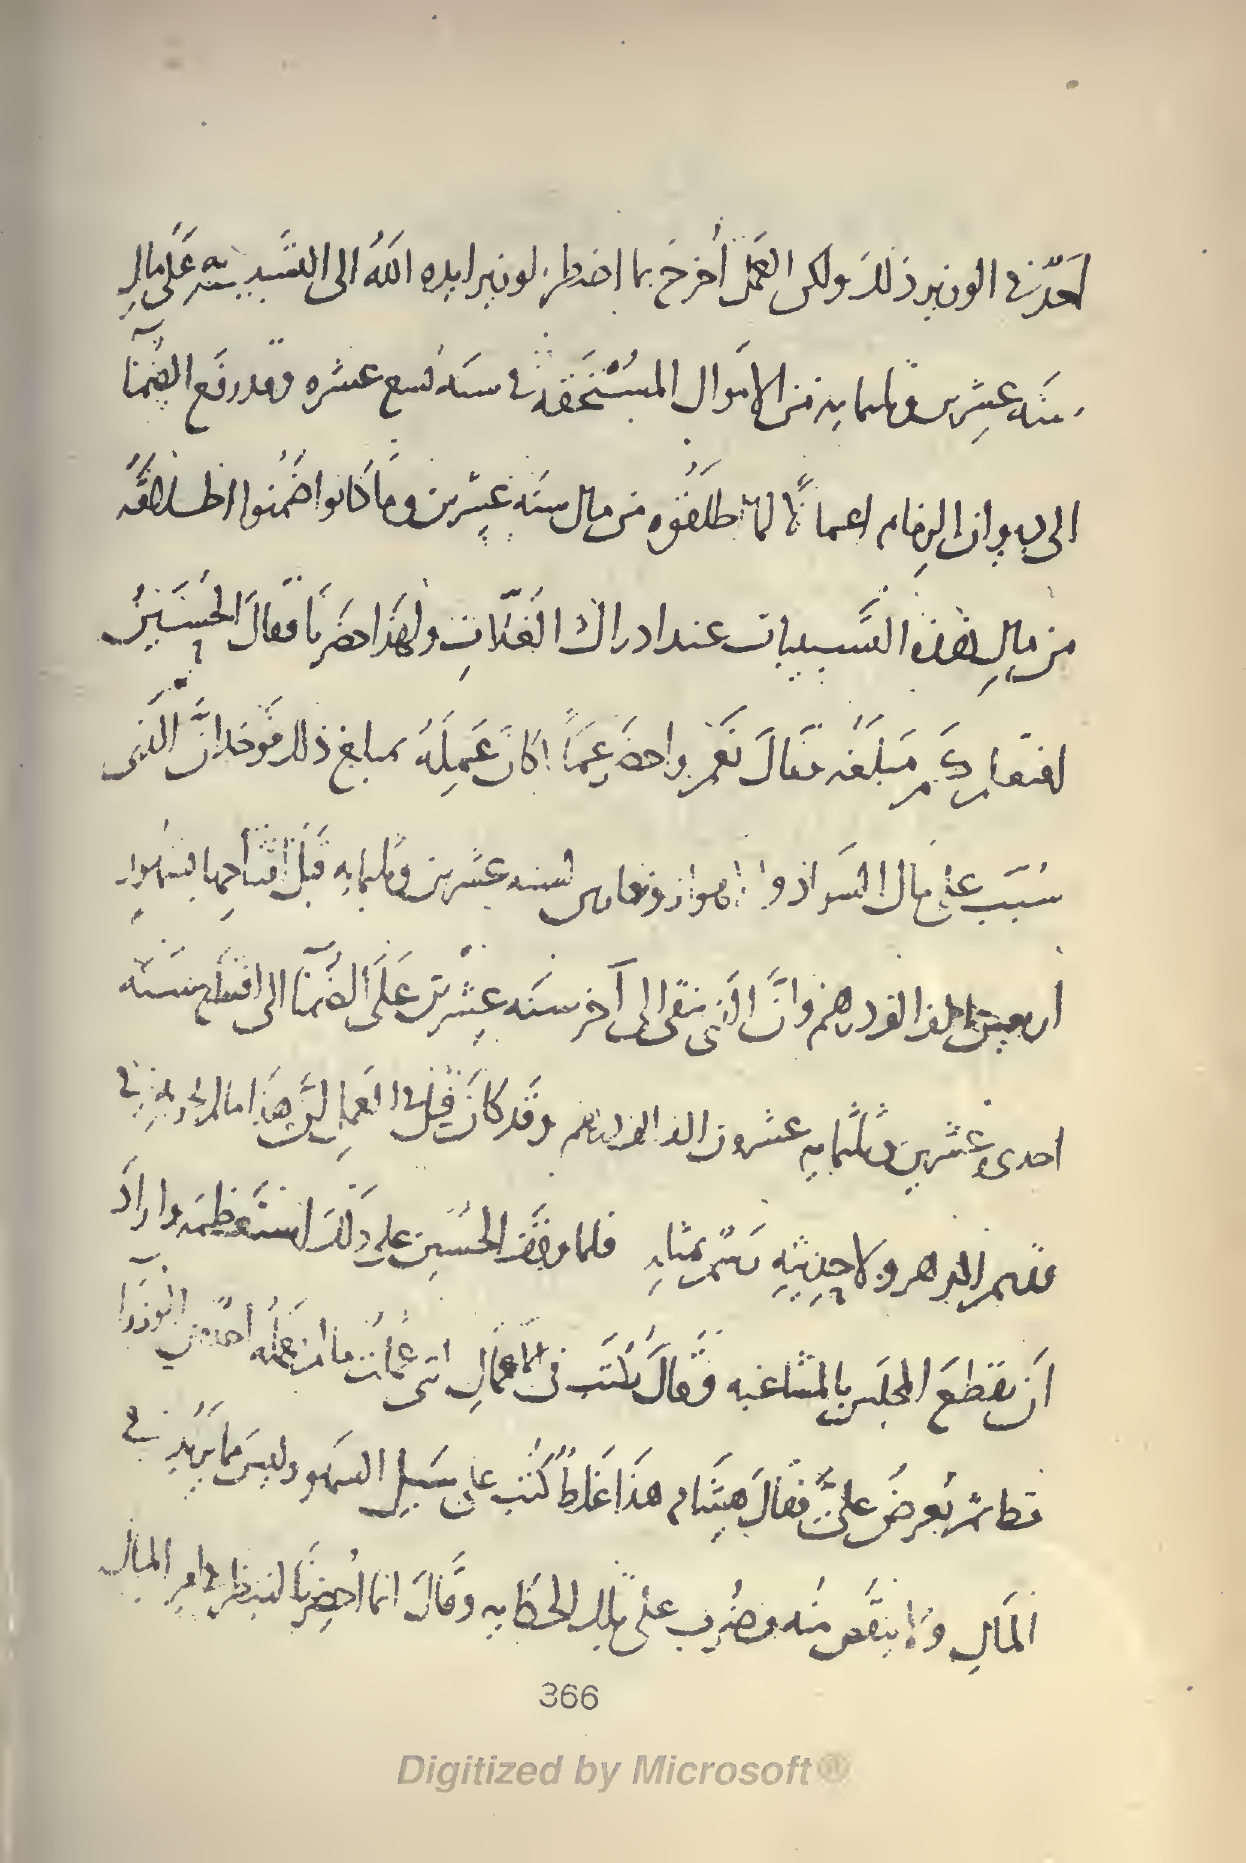 احدٌ من الوزير ذلك ولكن العمل أخرج بما اضطر لوزير ايده اللهُ الى التسبيب به على مال
سنه عشرين وثلثمايه من الاموال المستحقه في سنه تسع عشره وقد رفع الضمنآ
الى ديوان الزمام اعمالاً لما اطلقوه من مال سنه عشرين وما كانوا ضمنوا اطلاقه
من مال هذه التسبيبات عند ادراك الغلات ولهذا حضرنا فقال الحسين
افتعلم كم مبلغه فقال نعم واحضر عملاً كان عمله بمبلغ ذلك فوجد ان الذي
سبب على مال السواد والاهواز وفارس لسنه عشرين وثلثمايه قبل افتتاحها بشهور
اربعين الف الف درهم وان الذي بقى الى آخر سنه عشرين على الضمنآ الى افتتاح سنه
احدى وعشرين وثلثمايه عشرون الف الف درهم وقد كان قيل في العمل إن هذا ما لم يجر في
قديم الدهر ولا حديثه رسم بمثله فلما وقف الحسين على ذلك استعظمه واراد
أن يقطع المجلس بالمشاغبه وقال يكتب في الاعمال التي عملت ما لم يعمله احدٌ من الوزرآ
قط ثم يعرض علىَّ فقال هشام هذا غلطٌ كتب على سبيل السهو وليس مما يزيد في
المال ولا ينقص منه وضرب على تلك الحكايه وقال انما أحضرنا لننظر في امر المال
366
Digitized by Microsoft®